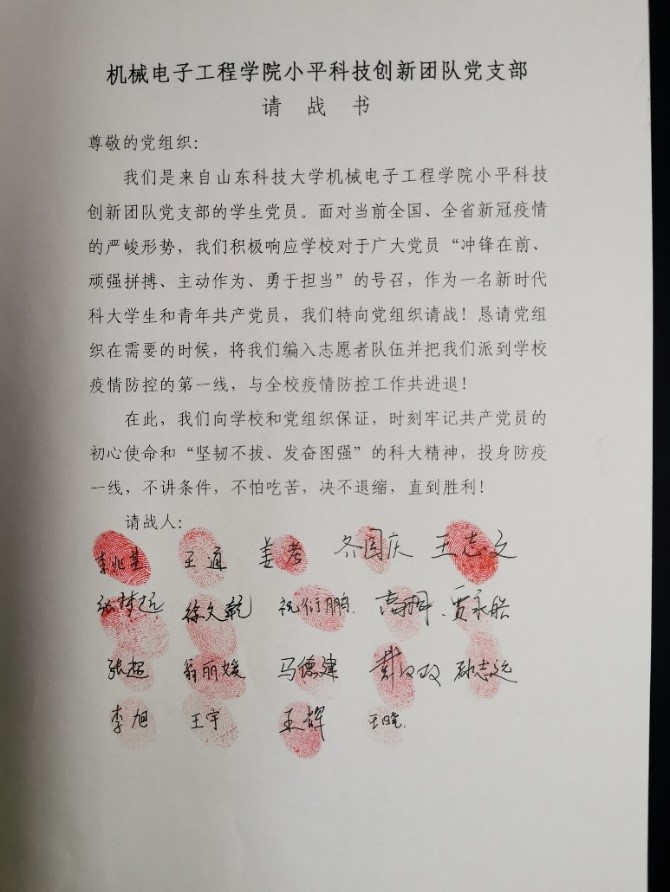 机械电子工程学院小平科技创新团队党支部
请 战 书
尊敬的党组织:
我们是来自山东科技大学机械电子工程学院小平科技
创新团队党支部的学生党员。面对当前全国、全省新冠疫情
的严峻形势，我们积极响应学校对于广大党员“冲锋在前、
顽强拼搏、主动作为、勇于担当”的号召，作为一名新时代
科大学生和青年共产党员，我们特向党组织请战！恳请党组
织在需要的时候，将我们编入志愿者队伍并把我们派到学校
疫情防控的第一线，与全校疫情防控工作共进退！
在此，我们向学校和党组织保证，时刻牢记共产党员的
初心使命和“坚韧不拔、发奋图强”的科大精神，投身防疫
一线，不讲条件，不怕吃苦，决不退缩，直到胜利！
请战人:
王通 王志文
张梦远 徐文乾 祝衍鹏
张超 翁丽媛 马德建 孙志远
李旭 王宇 王辉